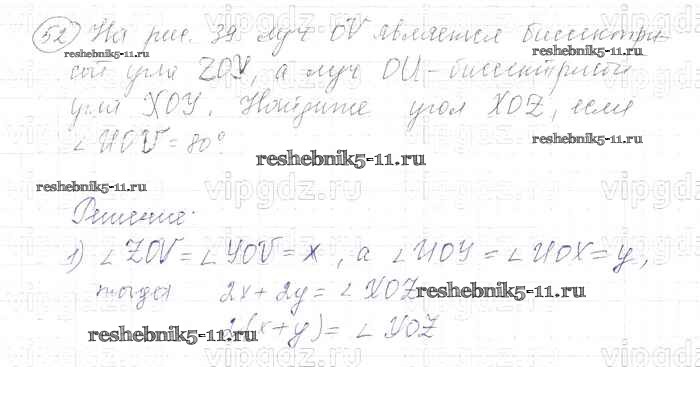 52 На рис. 39 луч OV является биссектри-
сой угла ZOY, а луч OU - биссектрисой
угла XOY. Найдите угол XOZ, если
∠UOV = 80°.
Решение.
1) ∠ZOV = ∠YOV = x, а ∠UOY = ∠UOX = y,
тогда 2x + 2y = ∠XOZ
2(x + y) = ∠XOZ
reshebnik5-11.ru
reshebnik5-11.ru
reshebnik5-11.ru
reshebnik5-11.ru
reshebnik5-11.ru
reshebnik5-11.ru
reshebnik5-11.ru
vipgdz.ru